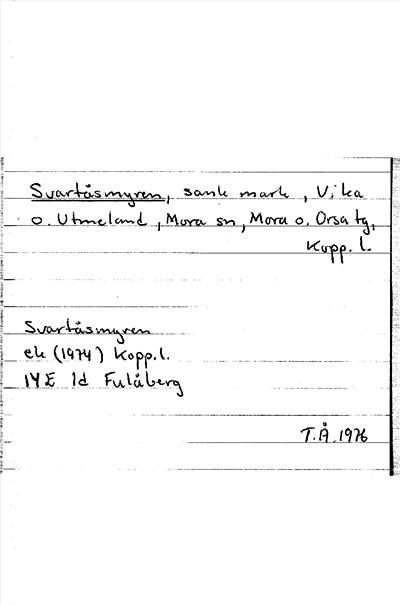 Svartåsmyren, sank mark, Vika
o. Utmeland, Mora sn, Mora o. Orsa tg,
Kopp. l.
Svartåsmyren
ek (1974) Kopp. l.
14E 1d Fulåberg
T.Å. 1976